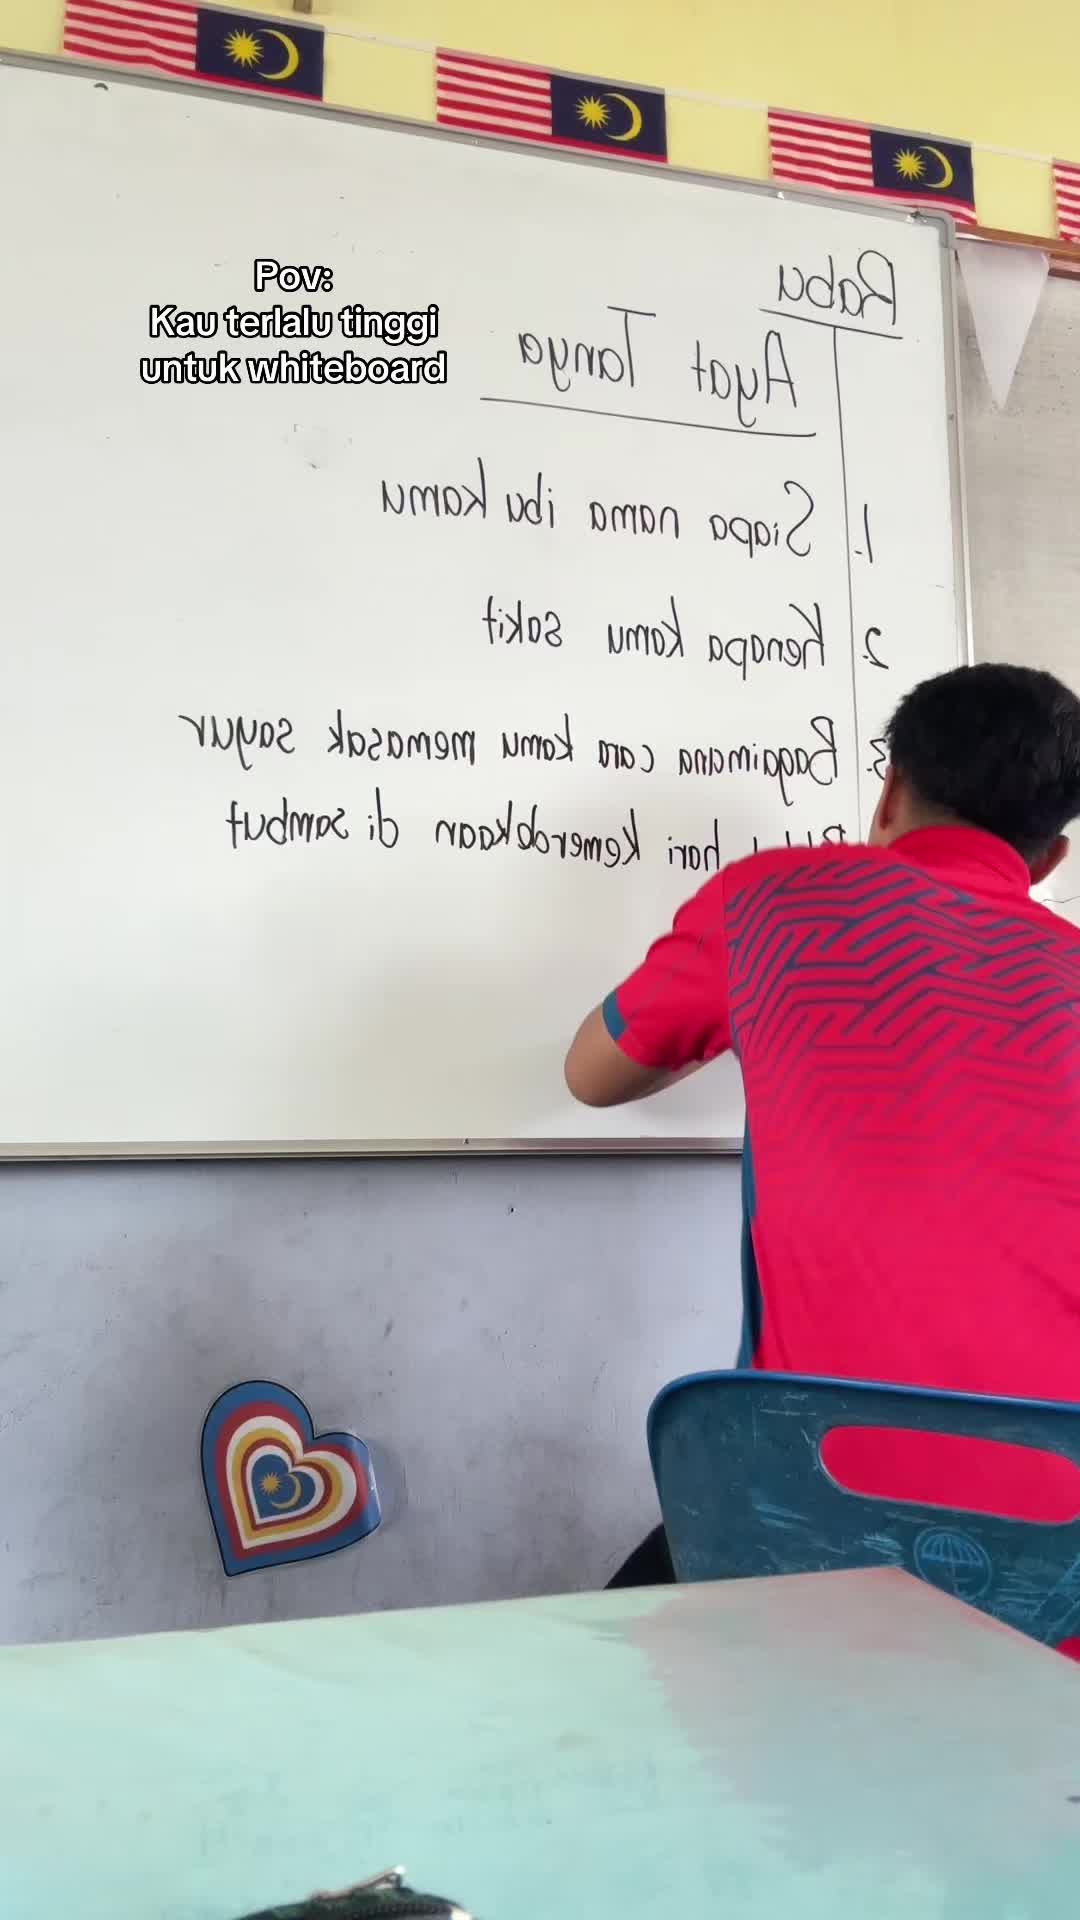 Pov:
Kau terlalu tinggi
untuk whiteboard
Rabu
Ayat Tanya
1. Siapa nama ibu kamu
2. Kenapa kamu sakit
3. Bagaimana cara kamu memasak sayur
hari kemerdekaan di sambut